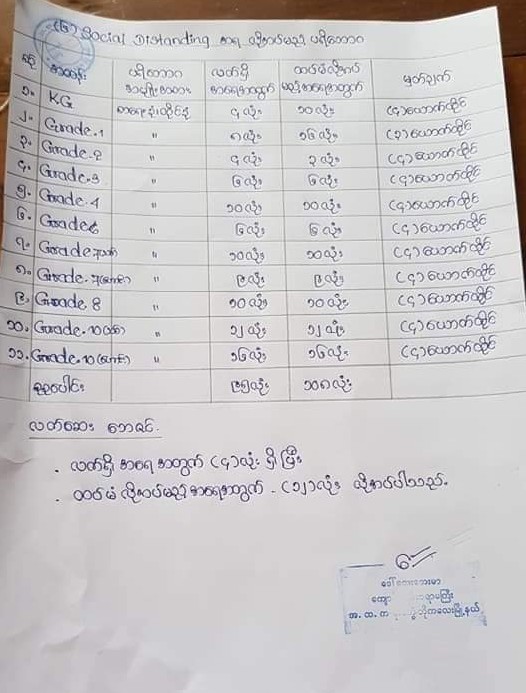 (၆) Social Distanding အရ လိုအပ်မည့် ပရိဘောဂ
စဉ် အတန်း ပရိဘောဂ အမျိုးအစား လက်ရှိ အရေအတွက် ထပ်မံလိုအပ် မည့်အရေအတွက် မှတ်ချက်
၁။ KG စာရေးခုံ၊ထိုင်ခုံ ၄ လုံး ၁၀ လုံး (၄) ယောက်ထိုင်
၂။ Grade.1 " ၈ လုံး ၁၆ လုံး (၃) ယောက်ထိုင်
၃။ Grade.2 " ၄ လုံး ၃ လုံး (၄) ယောက်ထိုင်
၄။ Grade.3 " ၆ လုံး ၆ လုံး (၄) ယောက်ထိုင်
၅။ Grade.4 " ၁၀ လုံး ၁၀ လုံး (၄) ယောက်ထိုင်
၆။ Grade " ၆ လုံး ၆ လုံး (၄) ယောက်ထိုင်
၇။ Grade " ၁၀ လုံး ၁၀ လုံး (၄) ယောက်ထိုင်
၈။ Grade " ၉ လုံး ၉ လုံး (၄) ယောက်ထိုင်
၉။ Grade. 8 " ၁၀ လုံး ၁၀ လုံး (၄) ယောက်ထိုင်
၁၀. Grade. 10 " ၁၂ လုံး ၁၂ လုံး (၄) ယောက်ထိုင်
၁၁. Grade. 10 " ၁၆ လုံး ၁၆ လုံး (၄) ယောက်ထိုင်
စုစုပေါင်း ၉၅ လုံး ၁၀၈ လုံး
လက်ဆေး ဘေစင်.
. လက်ရှိ အရေအတွက် (၄) လုံး ရှိပြီး
. ထပ်မံ လိုအပ်မည့် အရေအတွက် - (၁၂) လုံး လိုအပ်ပါသည်.
အ.ထ.က